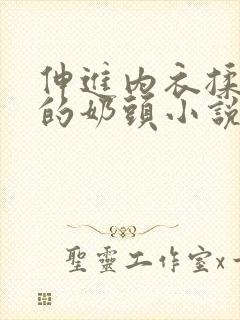 伸進內衣揉
的奶頭小說
聖靈工作室x